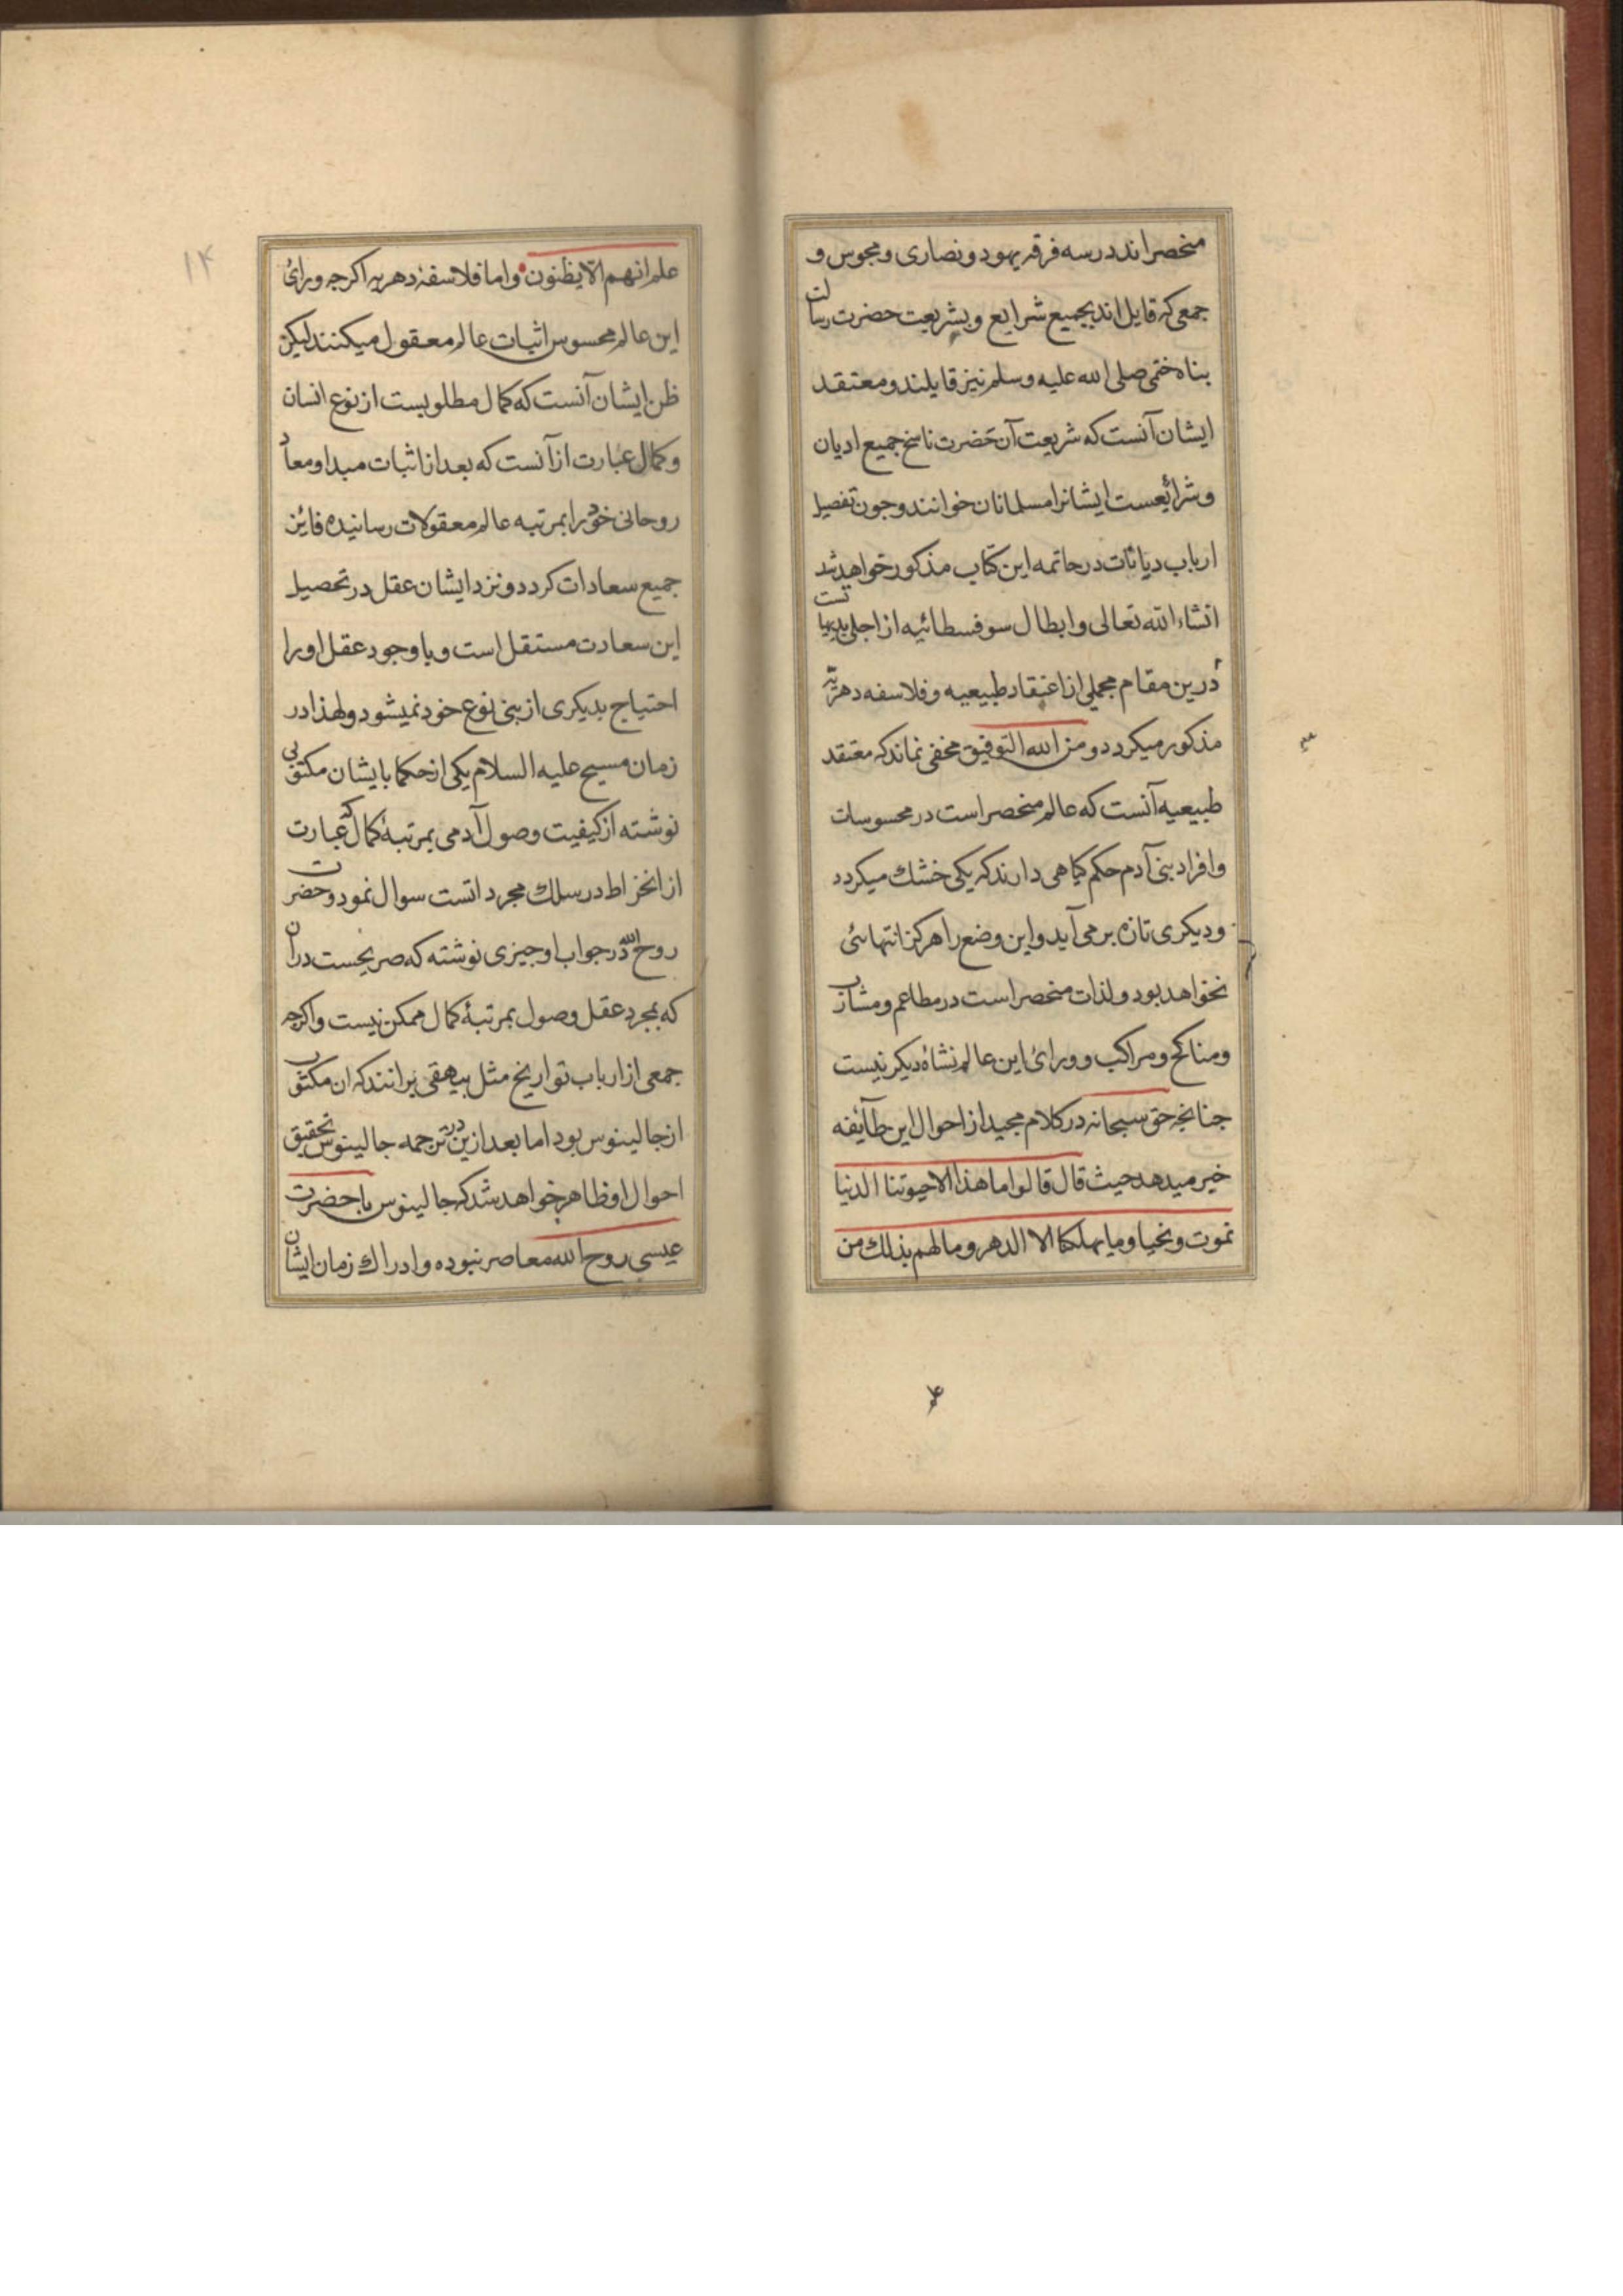 منحصراند در سه فرقه یهود و نصاری و مجوس و
جمعی که قایل اند بجمیع شرایع و بشریعت حضرت رسالت
پناه ختمی صلی الله علیه وسلم نیز قایلند و معتقد
ایشان آنست که شریعت آن حضرت ناسخ جمیع ادیان
و شرائعست ایشانرا مسلمانان خوانند و جون تفصیل
ارباب دیانات در خاتمه این کتاب مذکور خواهد شد
انشاء الله تعالی و ابطال سوفسطائیه از اجلی بدیهیاتست
درین مقام مجملی از اعتقاد طبیعیه و فلاسفه دهریه
مذکور میکردد و من الله التوفیق مخفی نماند که معتقد
طبیعیه آنست که عالم منحصر است در محسوسات
و افراد بنی آدم حکم کیاهی دارند که یکی خشك میکردد
و دیکری تازه بر می آید و این وضع را هرکز انتهائی
نخواهد بود و لذات منحصر است در مطاعم و مشارب
و مناکح و مراکب و ورائ این عالم نشاهٔ دیکر نیست
جنانجه حق سبحانه در کلام مجید از احوال این طآئفه
خبر میدهد حیث قال قالوا ما هذا الا حیوتنا الدنیا
نموت ونحیا وما یهلکنا الا الدهر وما لهم بذلك من
۱۴
علم انهم الا یظنون و اما فلاسفهٔ دهریه اکرجه ورائ
این عالم محسوس اثبات عالم معقول میکنند لیکن
ظن ایشان آنست که کمال مطلوبست از نوع انسان
و کمال عبارت از آنست که بعد از اثبات مبدا و معاد
روحانی خود را بمرتبه عالم معقولات رسانیده فائز
جمیع سعادات کردد و نزد ایشان عقل در تحصیل
این سعادت مستقل است و با وجود عقل او را
احتیاج بدیکری از بنی نوع خود نمیشود و لهذا در
زمان مسیح علیه السلام یکی از حکما بایشان مکتوبی
نوشته از کیفیت وصول آدمی بمرتبهٔ کمال که عبارت
از انخراط در سلك مجرداتست سوال نمود و حضرت
روح الله در جواب او جیزی نوشته که صریحست در ان
که بمجرد عقل وصول بمرتبهٔ کمال ممکن نیست و اکرجه
جمعی از ارباب تواریخ مثل بیهقی برانند که ان مکتوب
از جالینوس بود اما بعد ازین در ترجمه جالینوس تحقیق
احوال او ظاهر خواهد شد که جالینوس با حضرت
عیسی روح الله معاصر نبوده و ادراك زمان ایشان